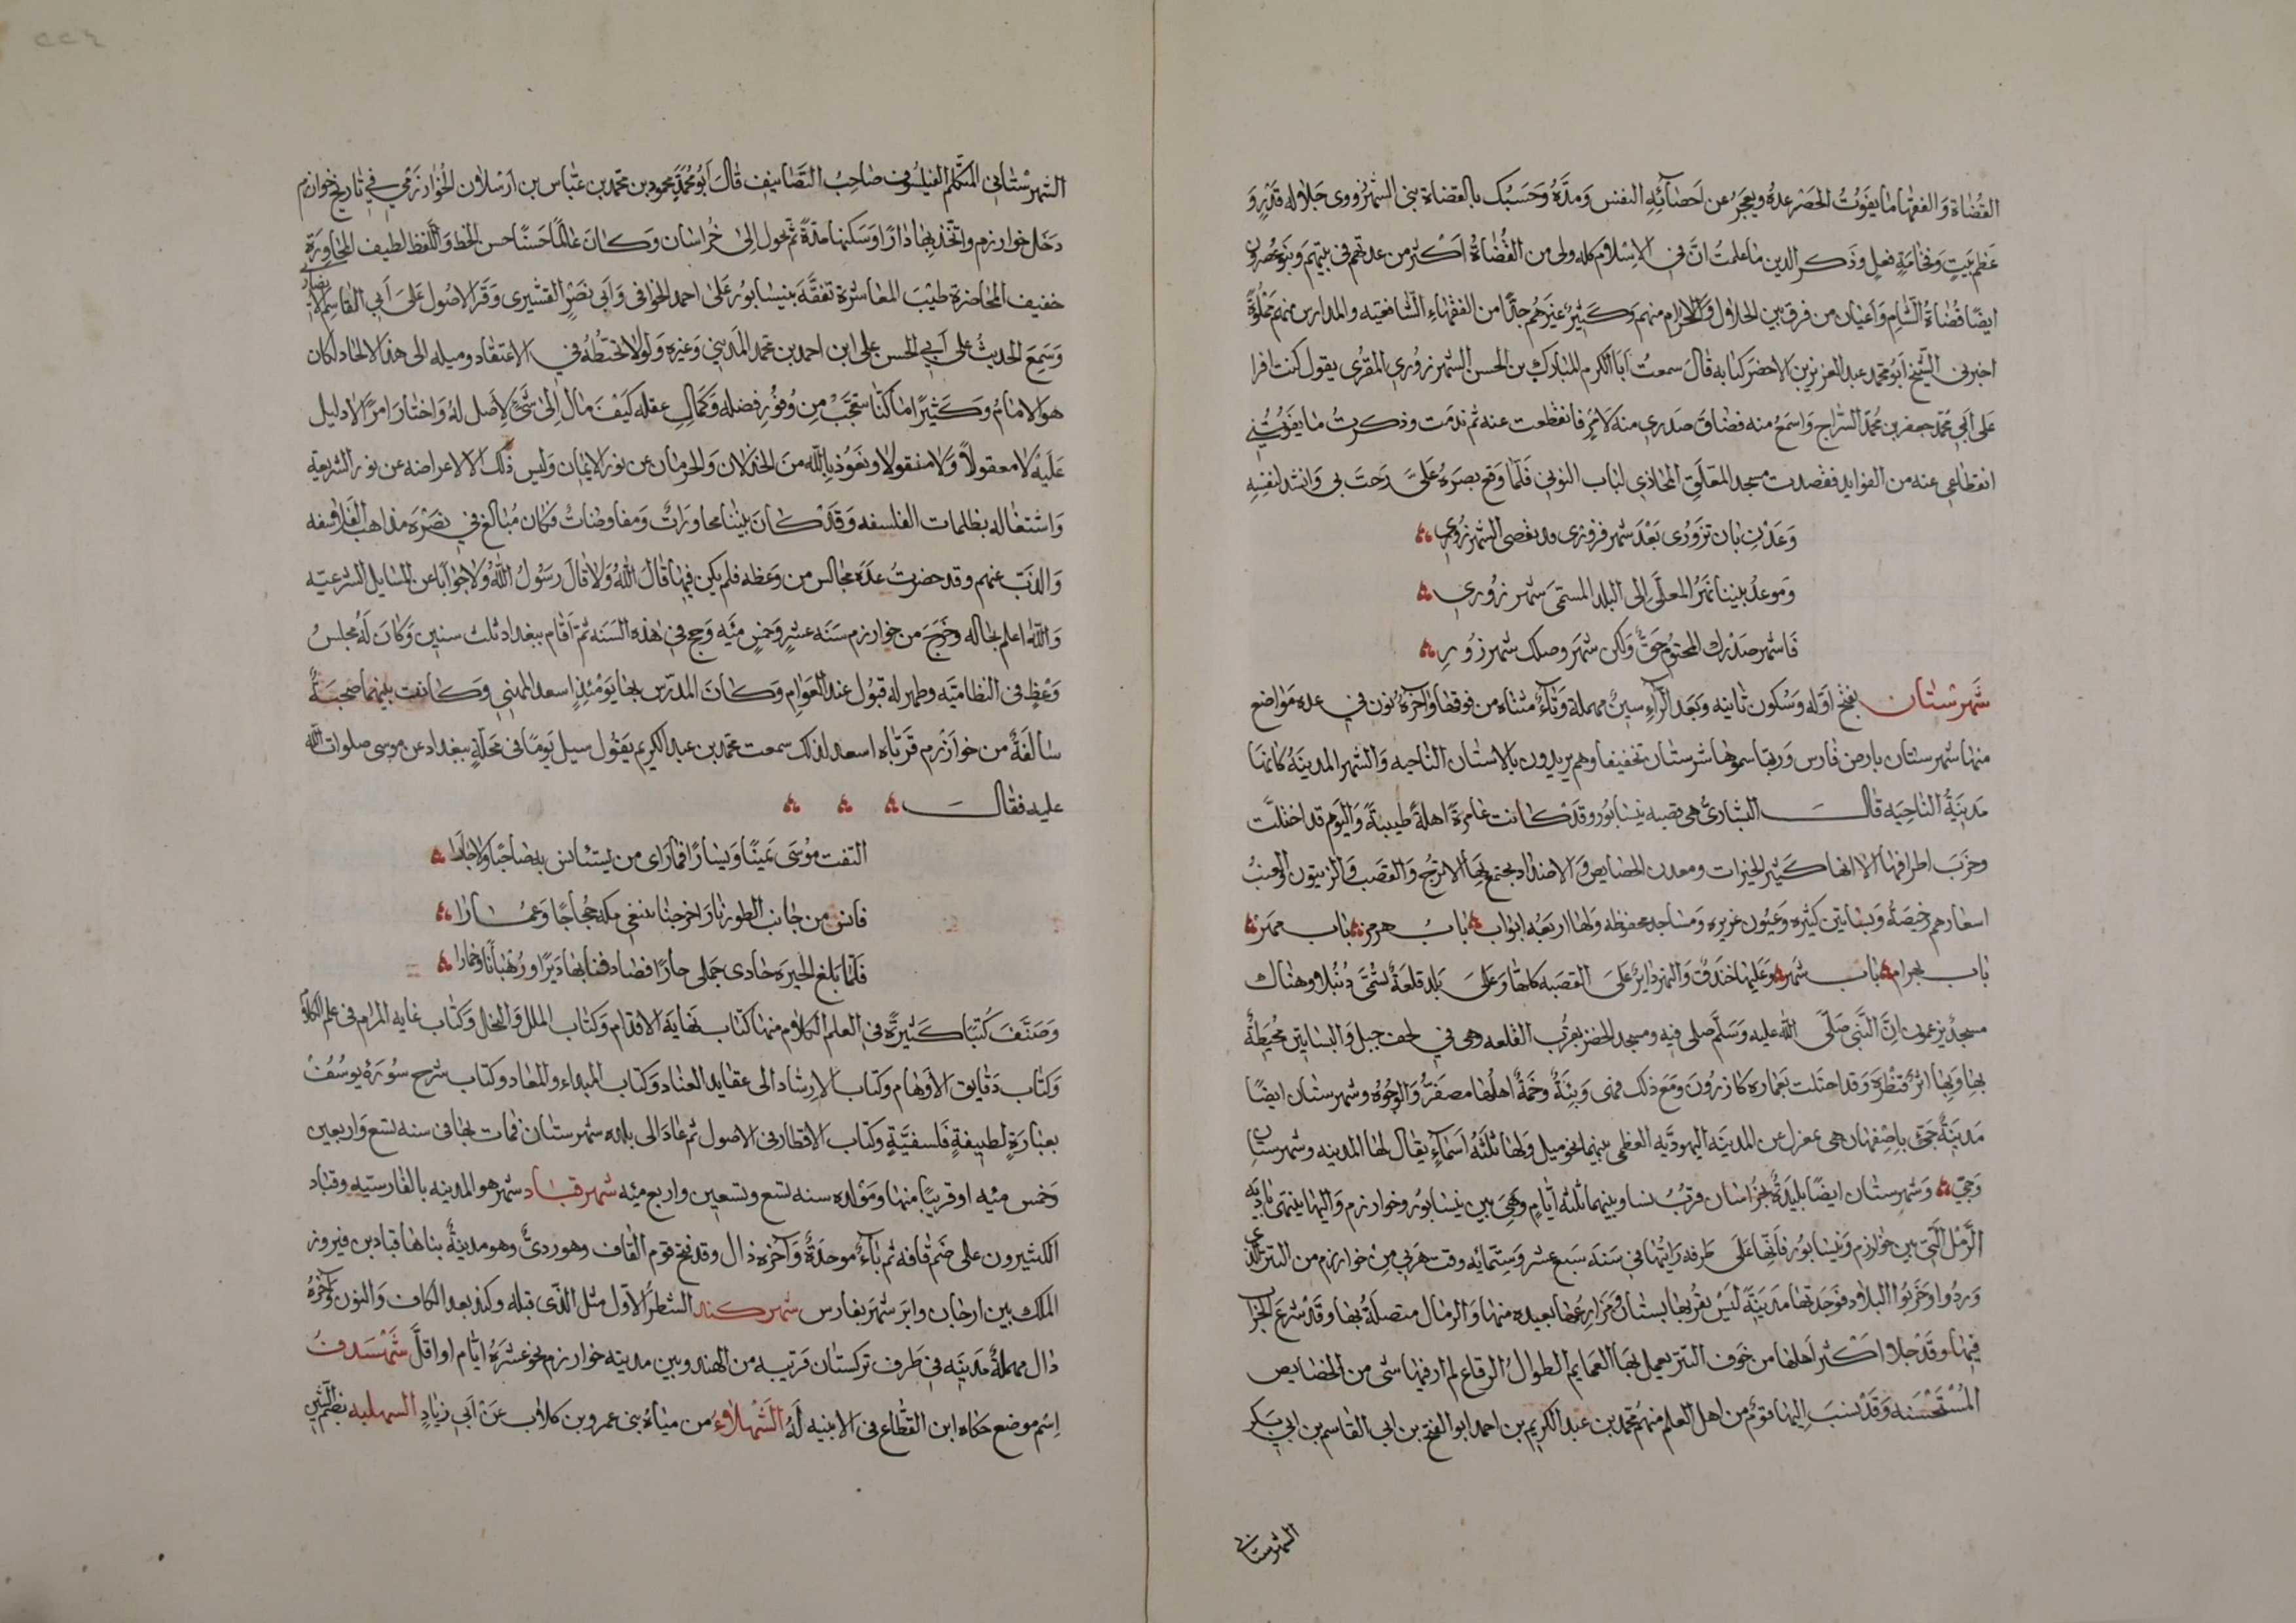 القضاة والفقهاء ما يفوت الحصر عده ويعجز عن احصائه النفس ومده وحسبك بالقضاة بني الشهرزوري جلالة قدر و
عظم بيت وفخامة فعل وذكر الذين ما علمت ان في الاسلام كله ولى من القضاة اكثر من عدتهم في بيتهم وبنو عصرون
ايضا قضاة الشام واعيان من فرق بين الحلال والحرام منهم وكثير غيرهم جدا من الفقهاء الشافعيه والمدارس منهم مملوة
اخبرني الشيخ ابو محمد عبد العزيز بن الاخضر كتابه قال سمعت ابا الكرم المبارك بن الحسن الشهرزوري المقرى يقول كنت اقرا
على ابي محمد جعفر بن محمد السراج واسمع منه فضاق صدري منه لامر فانقطعت عنه ثم ندمت وذكرت ما يفوتني
انقطاعي عنه من الفوايد فقصدت مسجد المعلق المحاذي لباب النوبي فلما وقع بصره على رحب بي وانشد لنفسه
وعدت بان تزوري بعد شهر فزوري قد تقضى الشهر زوري
وموعد بيننا نهر المعلى الى البلد المسمى شهرزوري
فاشهر صدك المحتوم حق ولكن شهر وصلك شهر زور
شهرستان بفتح اوله وسكون ثانيه وبعد الراء سين مهملة وتاء مثناه من فوقها واخره نون في عده مواضع
منها شهرستان بارض فارس وربما سموها شرستان تخفيفا وهم يريدون بالاستان الناحيه والشهر المدينة كانها
مدينة الناحيه قال البشاري هي قصبه نيسابور وقد كانت عامرة اهلة طيبة واليوم قد اختلت
وخرب اطرافها الا انها كثير الخيرات ومعدن الخصايص والاضداد يجتمع بها الاترج والقصب والزيتون والعنب
اسعارهم رخيصة وبساتين كثيره وعيون غزيره ومساجد محفوظه ولها اربعه ابواب باب هرمز باب مهر
باب بهرام باب شهر وعليها خندق والنهر داير على القصبه كلها وعلى بلد قلعة تسمى دنبلا وهناك
مسجد يزعمون ان النبي صلى الله عليه وسلم صلى فيه ومسجد الخضر بقرب القلعه وهي في لحف جبل والبساتين محيطة
بها وبها اثر قنطرة وقد اختلت بعماره كازرون ومع ذلك فهي وبئة وخمة اهلها مصفرو الوجوه وشهرستان ايضا
مدينة جي باصفهان هي بمعزل عن المدينة اليهودية العظمى بينهما نحو ميل ولها ثلثة اسماء يقال لها المدينه وشهرستان
وجي وشهرستان ايضا بليدة بخراسان قرب نسا وبينهما ثلثة ايام وهي بين نيسابور وخوارزم واليها ينتهى باديه
الرمل التي بين خوارزم ونيسابور فانها على طرفه رايتها في سنة سبع عشر وستمائة وقت هربي من خوارزم من التتر الذي
وردوا وخربوا البلاد فوجدتها مدينة ليس بقربها بستان ومزارعها بعيده منها والرمال متصلة بها وقد شرع الخراب
فيها وقد جلا اكثر اهلها من خوف التتر يعمل بها العمايم الطوال الرقاع لم ار فيها شي من الخصايص
المستحسنه وقد نسب اليها قوم من اهل العلم منهم محمد بن عبد الكريم بن احمد ابو الفتح بن ابي القاسم بن ابي بكر
الشهرستاني
الشهرستاني المتكلم الفيلسوف صاحب التصانيف قال ابو محمد محمود بن محمد بن عباس بن ارسلان الخوارزمي في تاريخ خوارزم
دخل خوارزم واتخذ بها دارا وسكنها مدة ثم تحول الى خراسان وكان عالما حسنا حسن الخط واللفظ لطيف المحاورة
خفيف المحاضرة طيب المعاشرة تفقه بنيسابور على احمد الخوافي وابي نصر القشيري وقرا الاصول على ابي القاسم الانصاري
وسمع الحديث على ابي الحسن على ابن احمد بن محمد المديني وغيره ولولا تخبطه في الاعتقاد وميله الى هذا الالحاد لكان
هو الامام وكثيرا ما كنا نتعجب من وفور فضله وكمال عقله كيف مال الى شئ لا اصل له واختار امرا لا دليل
عليه لا معقولا ولا منقولا ونعوذ بالله من الخذلان والحرمان عن نور الايمان وليس ذلك الا لاعراضه عن نور الشريعة
واشتغاله بظلمات الفلسفه وقد كان بيننا محاورات ومفاوضات فكان مبالغ في نصرة مذاهب الفلاسفه
والذب عنهم وقد حضرت عده مجالس من وعظه فلم يكن فيها قال الله ولا قال رسول الله ولا جوابا عن المسايل الشرعيه
والله اعلم بحاله وخرج من خوارزم سنه عشر وخمس مئه وحج في هذه السنه ثم اقام ببغداد ثلث سنين وكان له مجلس
وعظ في النظاميه وظهر له قبول عند العوام وكان المدرس بها يومئذ اسعد الميهني وكانت بينهما صحبة
سالفة من خوارزم قربه اسعد لذلك سمعت محمد بن عبد الكريم يقول سيل يوما في محلة ببغداد عن موسى صلوات الله
عليه فقال
التفت موسى يمينا ويسارا فما راى من يستانس به صاحبا ولا جارا
فانس من جانب الطور نارا خرجنا نبتغي مكه حجاجا وعمارا
فلما بلغ الحيره حادى جملى حارا فصادفنا بها ديرا ورهبانا وخمارا
وصنف كتبا كثيرة في العلم الكلام منها كتاب نهاية الاقدام وكتاب الملل والنحل وكتاب غايه المرام في علم الكلام
وكتاب دقايق الاوهام وكتاب الارشاد الى عقايد العباد وكتاب المبداء والمعاد وكتاب شرح سورة يوسف
بعبارة لطيفة فلسفية وكتاب الاقطار في الاصول ثم عاد الى بلده شهرستان فمات بها في سنه تسع واربعين
وخمس مئه او قريبا منها ومولده سنه تسع وتسعين واربع مئه شهر قباد شهر هو المدينه بالفارسيه وقباد
الكثيرون على ضم قافه ثم باء موحدة واخره ذال وقد فتح قوم القاف وهو ردئ وهو مدينة بناها قباد بن فيروز
الملك بين ارجان وابر شهر بفارس شهر كند الشطر الاول مثل الذي قبله وكند بعد الكاف والنون واخره
دال مهملة مدينه في طرف تركستان قريبه من الهند وبين مدينه خوارزم نحو عشرة ايام او اقل شهسدف
اسم موضع حكاه ابن القطاع في الابنيه له الشهلاء من مياه بنى عمرو بن كلاب عن ابي زياد السهليه